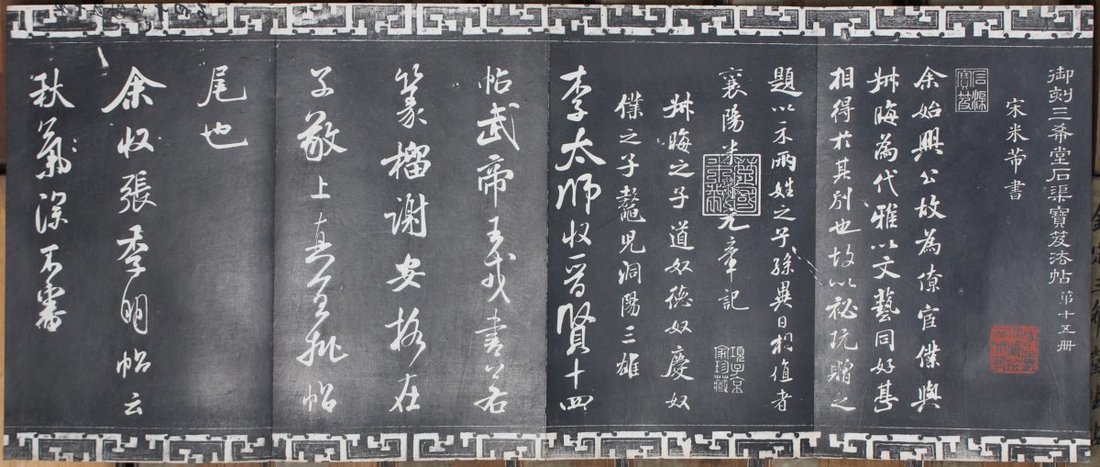 御刻三希堂石渠寶笈法帖 第十五冊
宋米芾書
石渠寶笈
余始興公故為僚宦僕與
叔晦為代雅以文藝同好甚
相得於其別也故以秘玩贈之
題以示兩姓之子孫異日相值者
襄陽米元章記
項子京家珍藏
叔晦之子道奴德奴慶奴
僕之子鼇兒洞陽三雄
李太師收晉賢十四
帖武帝王戎書若
篆籀謝安格在
子敬上真宜批帖
尾也
余收張季明帖云
秋氣深不審